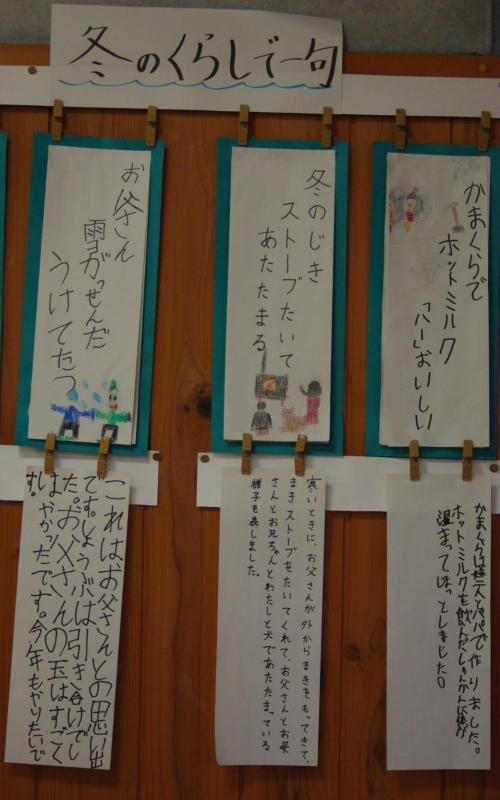 冬のくらしで一句
かまくらで
ホットミルク
「ハー」おいしい
かまくらは妹二人とパパで作りました。
ホットミルクを飲んだしゅんかんに体が
温まってほっとしました。
冬のじき
ストーブたいて
あたたまる
寒いときに、お父さんが外からまきをもってきて、
まきストーブをたいてくれて、お父さんとお母
さんとお兄ちゃんとわたしと犬であたたまっている
様子を表しました。
お父さん
雪がっせんだ
うけてたつ
これはお父さんとの思い出
です。しょうぶは引き分けでし
た。お父さんの玉はすごく
はやかったです。今年もやりたいで
す。